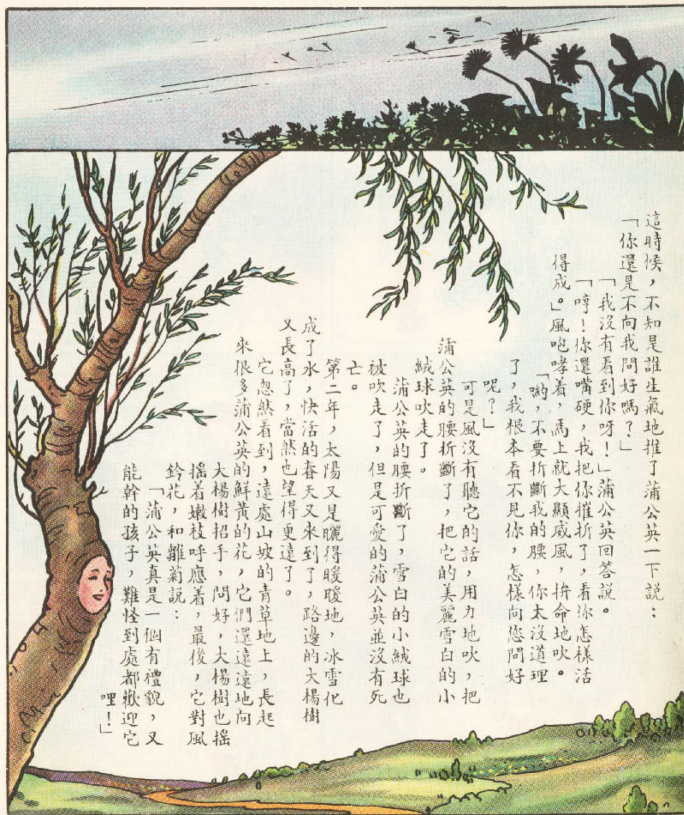 這時候，不知是誰生氣地推了蒲公英一下説：
「你還是不向我問好嗎？」
「我沒有看到你呀！」蒲公英回答説。
「哼！你還嘴硬，我把你摧折了，看你怎樣活
得成。」風咆哮着，馬上就大顯威風，拚命地吹。
「喲，不要折斷我的腰，你太沒道理
了，我根本看不見你，怎樣向您問好
呢？」
可是風沒有聽它的話，用力地吹，把
蒲公英的腰折斷了，把它的美麗雪白的小
絨球吹走了。
蒲公英的腰折斷了，雪白的小絨球也
被吹走了，但是可愛的蒲公英並沒有死
亡。
第二年，太陽又是曬得暖暖地，冰雪化
成了水，快活的春天又來到了，路邊的大楊樹
又長高了，當然也望得更遠了。
它忽然看到，遠處山坡的青草地上，長起
來很多蒲公英的鮮黃的花，它們還遠遠地向
大楊樹招手，問好，大楊樹也搖
搖着嫩枝呼應着，最後，它對風
鈴花，和雛菊説：
「蒲公英真是一個有禮貌，又
能幹的孩子，難怪到處都歡迎它
哩！」